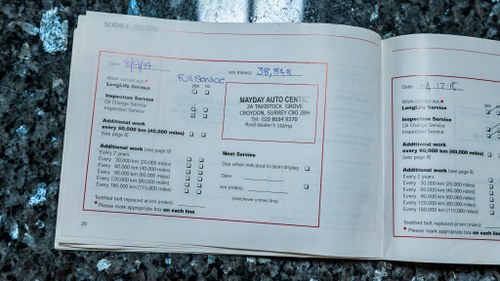 SERVICE RECORD
Date:
km (miles): 38,848
Full Service
Work carried out:
LongLife Service
Inspection Service
Oil Change Service
Inspection Service
Additional work
every 60,000 km (40,000 miles)
(see page 8)
MAYDAY AUTO CENTA
2A TAVISTOCK GROVE
CROYDON, SURREY CR0 2BH
Tel: 020 8684 9370
Audi dealer's stamp
Additional work (see page 9)
Every 2 years
Every 30,000 km (20,000 miles)
Every 60,000 km (40,000 miles)
Every 90,000 km (60,000 miles)
Every 120,000 km (80,000 miles)
Every 180,000 km (115,000 miles)
Toothed belt replaced at km (miles):
* Please mark appropriate box on each line
Next Service
Due when indicated in dash display
Date:
km (miles):
(whichever comes first)
20
Date:
Work carried out:
LongLife Service
Inspection Service
Oil Change Service
Inspection Service
Additional work
every 60,000 km (40,000 miles)
(see page 8)
Additional work (see page 9)
Every 2 years
Every 30,000 km (20,000 miles)
Every 60,000 km (40,000 miles)
Every 90,000 km (60,000 miles)
Every 120,000 km (80,000 miles)
Every 180,000 km (115,000 miles)
Toothed belt replaced at km (miles):
* Please mark appropriate box on each line